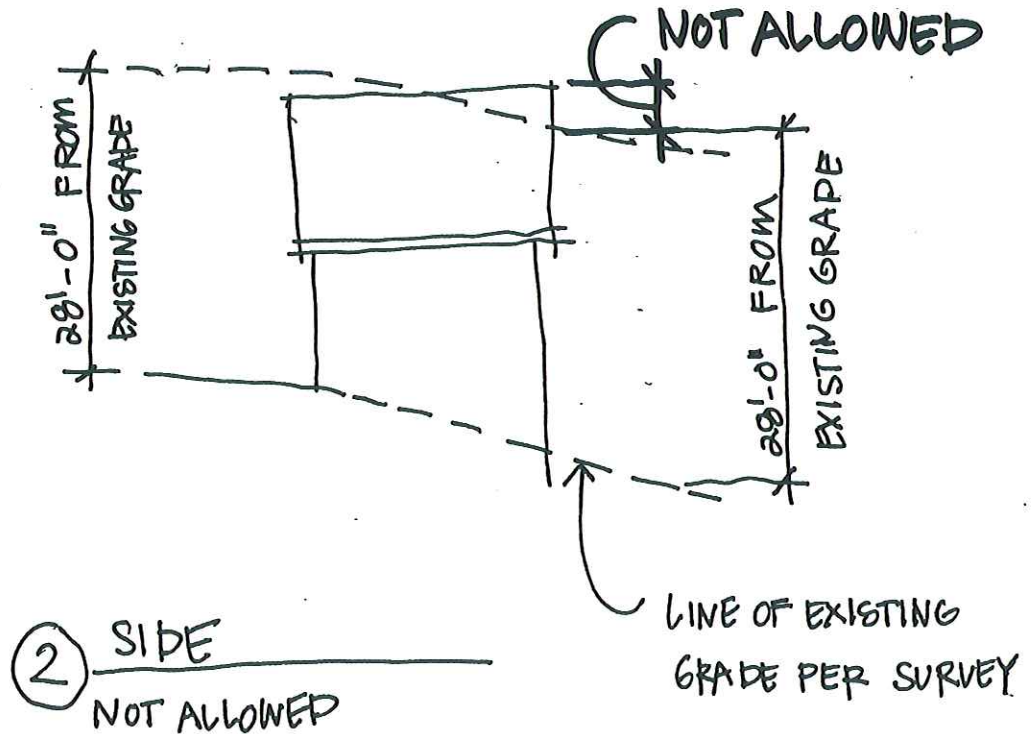 NOT ALLOWED
28'-0" FROM
EXISTING GRADE
28'-0" FROM
EXISTING GRADE
LINE OF EXISTING
GRADE PER SURVEY
2 SIDE
NOT ALLOWED